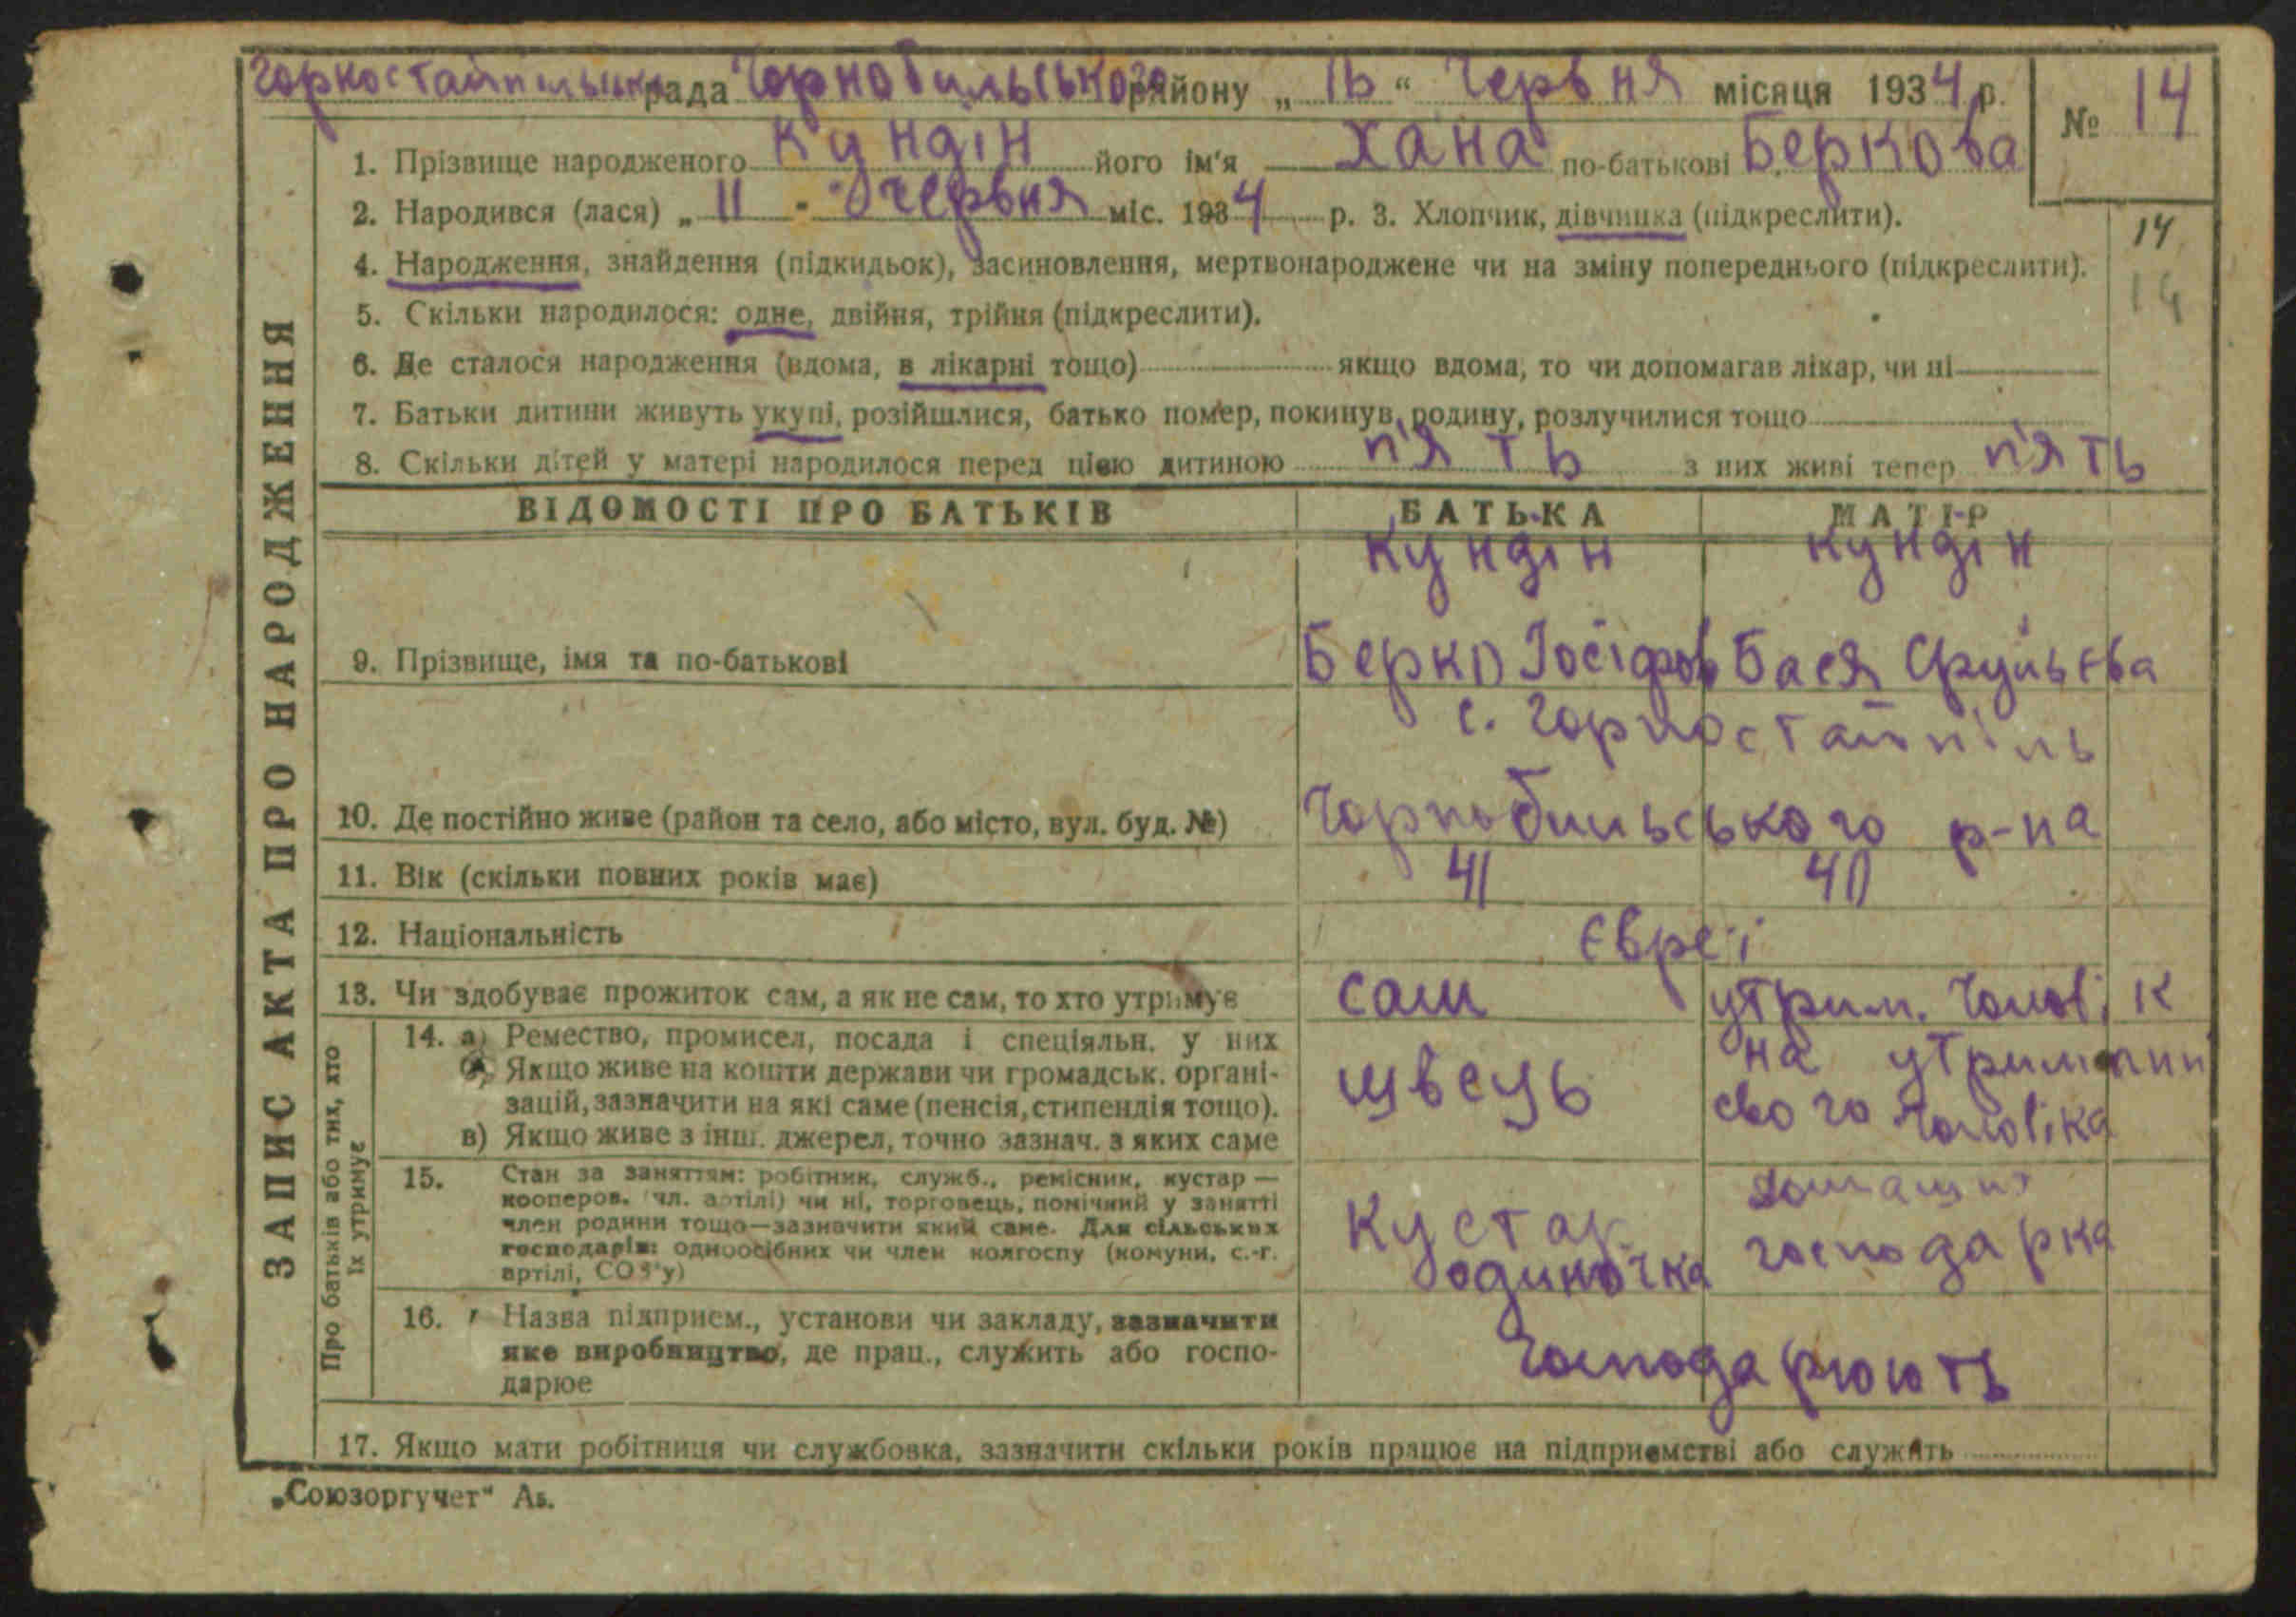 Горностайпільська рада Чорнобильського району „ 16 “ Червня місяця 1934 р.
№ 14
1. Прізвище народженого Кундін його ім'я Хана по-батькові Беркова
2. Народився (лася) „ 11 " червня міс. 1934 р. 3. Хлопчик, дівчинка (підкреслити).
14
4. Народження, знайдення (підкидьок), засиновлення, мертвонароджене чи на зміну попереднього (підкреслити).
14
5. Скільки народилося: одне, двійня, трійня (підкреслити).
6. Де сталося народження (вдома, в лікарні тощо) якщо вдома, то чи допомагав лікар, чи ні
7. Батьки дитини живуть укупі, розійшлися, батько помер, покинув родину, розлучилися тощо
8. Скільки дітей у матері народилося перед цією дитиною п'ять з них живі тепер п'ять
ВІДОМОСТІ ПРО БАТЬКІВ БАТЬКА МАТІР
Кундін Кундін
9. Прізвище, імя та по-батькові Берко Іосіфов Бася Срульєва
с. Горностайпіль
10. Де постійно живе (район та село, або місто, вул. буд. №) Чорнобильського р-на
11. Вік (скільки повних років має) 41 40
12. Національність Євреї
13. Чи здобуває прожиток сам, а як не сам, то хто утримує сам утрим. чоловік
14. а) Ремество, промисел, посада і спеціяльн. у них
б) Якщо живе на кошти держави чи громадськ. органі-
зацій, зазначити на які саме (пенсія, стипендія тощо).
в) Якщо живе з інш. джерел, точно зазнач. з яких саме
швець
на утриманні
свого чоловіка
15. Стан за заняттям: робітник, служб., ремісник, кустар —
кооперов. (чл. артілі) чи ні, торговець, помічний у занятті
член родини тощо—зазначити який саме. Для сільських
господарів: одноосібних чи член колгоспу (комуни, с.-г.
артілі, СОЗ'у)
Кустар
одиночка
домашня
господарка
16. Назва підприєм., установи чи закладу, зазначити
яке виробництво, де прац., служить або госпо-
дарює
Господарюють
17. Якщо мати робітниця чи службовка, зазначити скільки років працює на підприємстві або служить
ЗАПИС АКТА ПРО НАРОДЖЕННЯ
Про батьків або тих, хто
їх утримує
„Союзоргучет“ Ав.